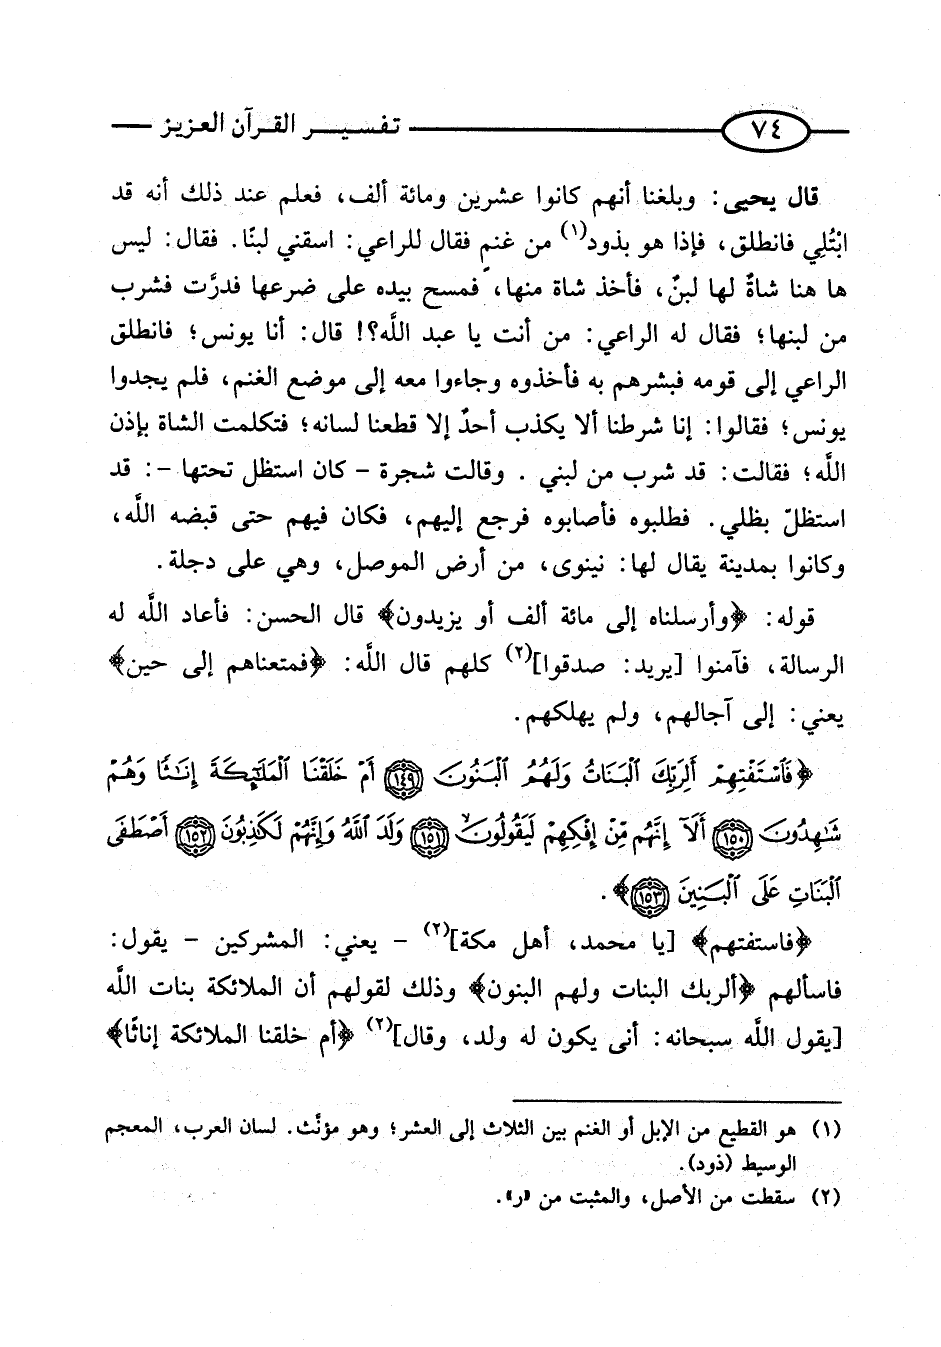 ٧٤ تفسير القرآن العزيز
قال يحيى: وبلغنا أنهم كانوا عشرين ومائة ألف، فعلم عند ذلك أنه قد
ابْتُلِي فانطلق، فإذا هو بذود(١) من غنم فقال للراعي: اسقني لبنًا. فقال: ليس
ها هنا شاةٌ لها لبنٌ، فأخذ شاة منها، فمسح بيده على ضرعها فدرَّت فشرب
من لبنها؛ فقال له الراعي: من أنت يا عبد اللَّه؟! قال: أنا يونس؛ فانطلق
الراعي إلى قومه فبشرهم به فأخذوه وجاءوا معه إلى موضع الغنم، فلم يجدوا
يونس؛ فقالوا: إنا شرطنا ألا يكذب أحدٌ إلا قطعنا لسانه؛ فتكلمت الشاة بإذن
اللَّه؛ فقالت: قد شرب من لبني . وقالت شجرة - كان استظل تحتها -: قد
استظلّ بظلي. فطلبوه فأصابوه فرجع إليهم، فكان فيهم حتى قبضه اللَّه،
وكانوا بمدينة يقال لها: نينوى، من أرض الموصل، وهي على دجلة.
قوله: ﴿وأرسلناه إلى مائة ألف أو يزيدون﴾ قال الحسن: فأعاد اللَّه له
الرسالة، فآمنوا [يريد: صدقوا](٢) كلهم قال اللَّه: ﴿فمتعناهم إلى حين﴾
يعني: إلى آجالهم، ولم يهلكهم.
﴿فَٱسْتَفْتِهِمْ أَلِرَبِّكَ ٱلْبَنَاتُ وَلَهُمُ ٱلْبَنُونَ ١٤٩ أَمْ خَلَقْنَا ٱلْمَلَٰٓئِكَةَ إِنَٰثًا وَهُمْ
شَٰهِدُونَ ١٥٠ أَلَآ إِنَّهُم مِّنْ إِفْكِهِمْ لَيَقُولُونَ ١٥١ وَلَدَ ٱللَّهُ وَإِنَّهُمْ لَكَٰذِبُونَ ١٥٢ أَصْطَفَى
ٱلْبَنَاتِ عَلَى ٱلْبَنِينَ ١٥٣﴾.
﴿فاستفتهم﴾ [يا محمد، أهل مكة](٢) - يعني: المشركين - يقول:
فاسألهم ﴿ألربك البنات ولهم البنون﴾ وذلك لقولهم أن الملائكة بنات اللَّه
[يقول اللَّه سبحانه: أنى يكون له ولد، وقال](٢) ﴿أم خلقنا الملائكة إناثًا﴾
(١) هو القطيع من الإبل أو الغنم بين الثلاث إلى العشر؛ وهو مؤنَّث. لسان العرب، المعجم
الوسيط (ذود).
(٢) سقطت من الأصل، والمثبت من «ر».